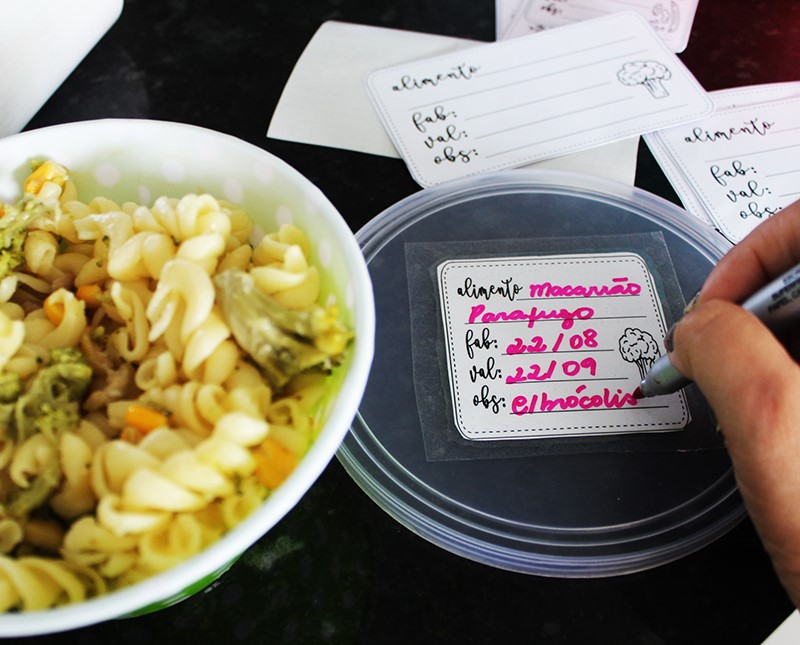 obs:
alimento
fab:
val:
obs:
alimento
fab:
val:
obs:
alimento macarrão
Parafuso
fab: 22/08
val: 22/09
obs: c/brócolis